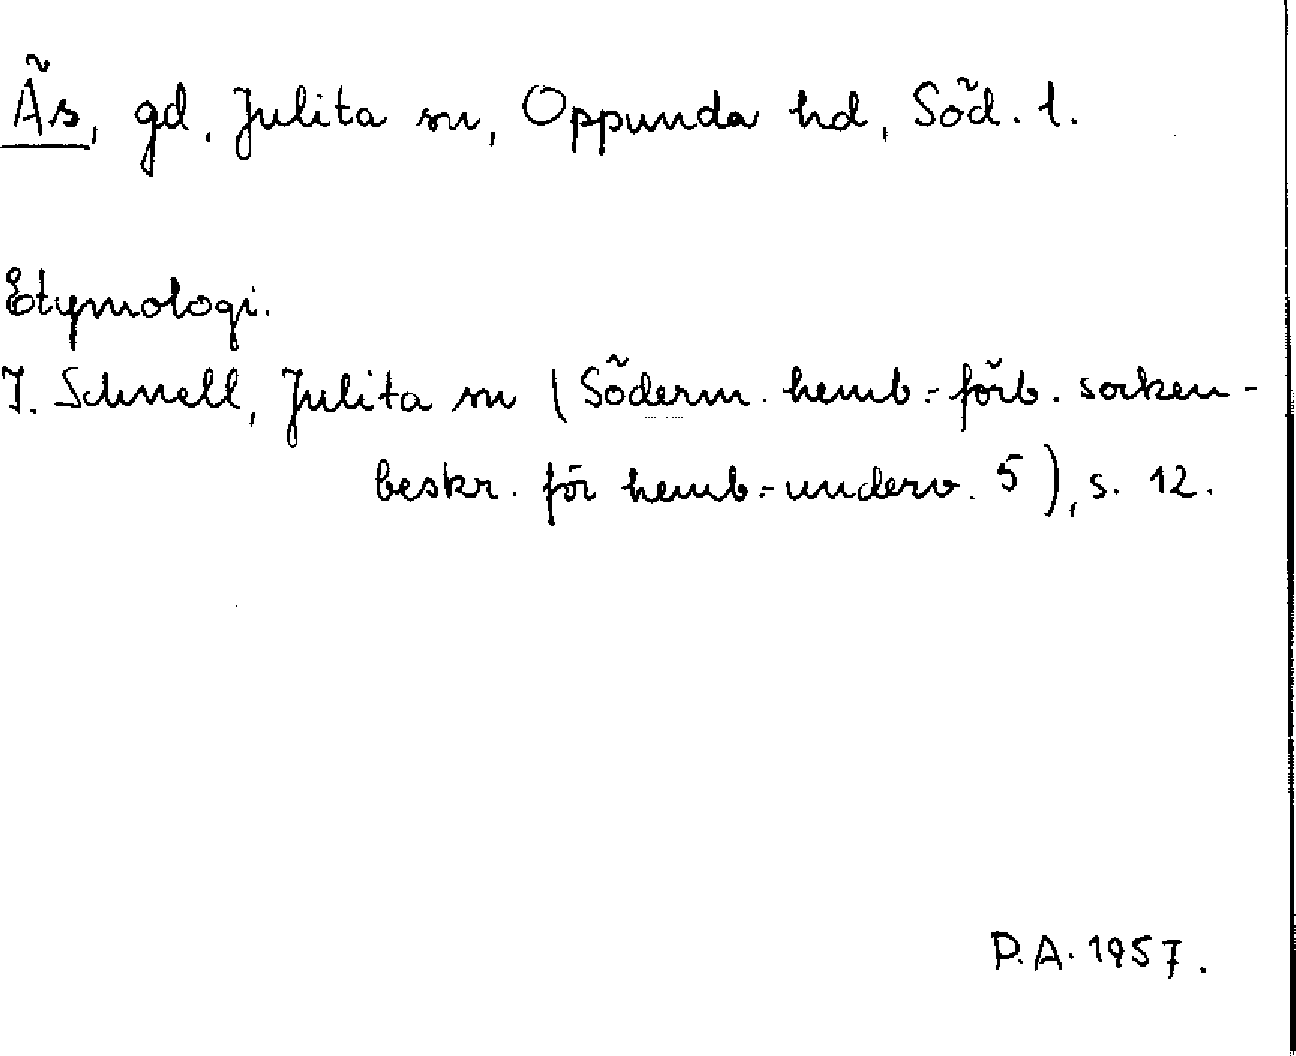 Äs, gd, Julita sn, Oppunda hd, Söd. l.
Etymologi.
I. Schnell, Julita sn (Söderm. hemb.-förb. socken-
beskr. för hemb.-underv. 5), s. 12.
P.A. 1957.